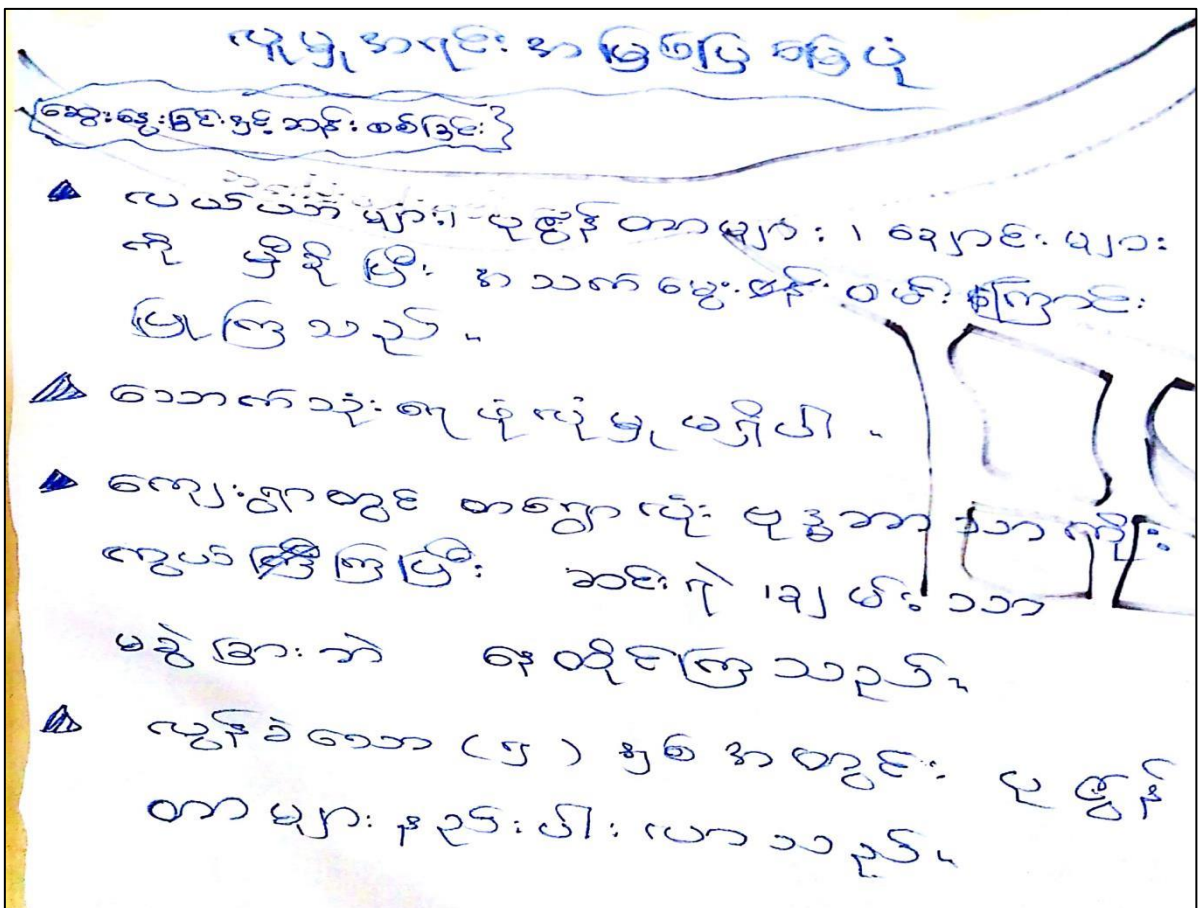 လူမှုအရင်းအမြစ်ပြမြေပုံ
{ဆွေးနွေးခြင်းနှင့်ဆန်းစစ်ခြင်း}
လယ်ယာများ၊ ပုစွန်တာများ၊ ချောင်းများ
ကို မှီခိုပြီး အသက်မွေးဝမ်းကြောင်း
ပြုကြသည်။
သောက်သုံးရေ ဖူလုံမှု မရှိပါ။
ကျေးရွာတွင် တရွာလုံး ဗုဒ္ဓဘာသာကိုး
ကွယ်ကြပြီး ဆင်းရဲ ၊ချမ်းသာ
မခွဲခြားဘဲ နေထိုင်ကြသည်။
လွန်ခဲ့သော (၅) နှစ်အတွင်း ပုစွန်
တာများနည်းပါးလာသည်။